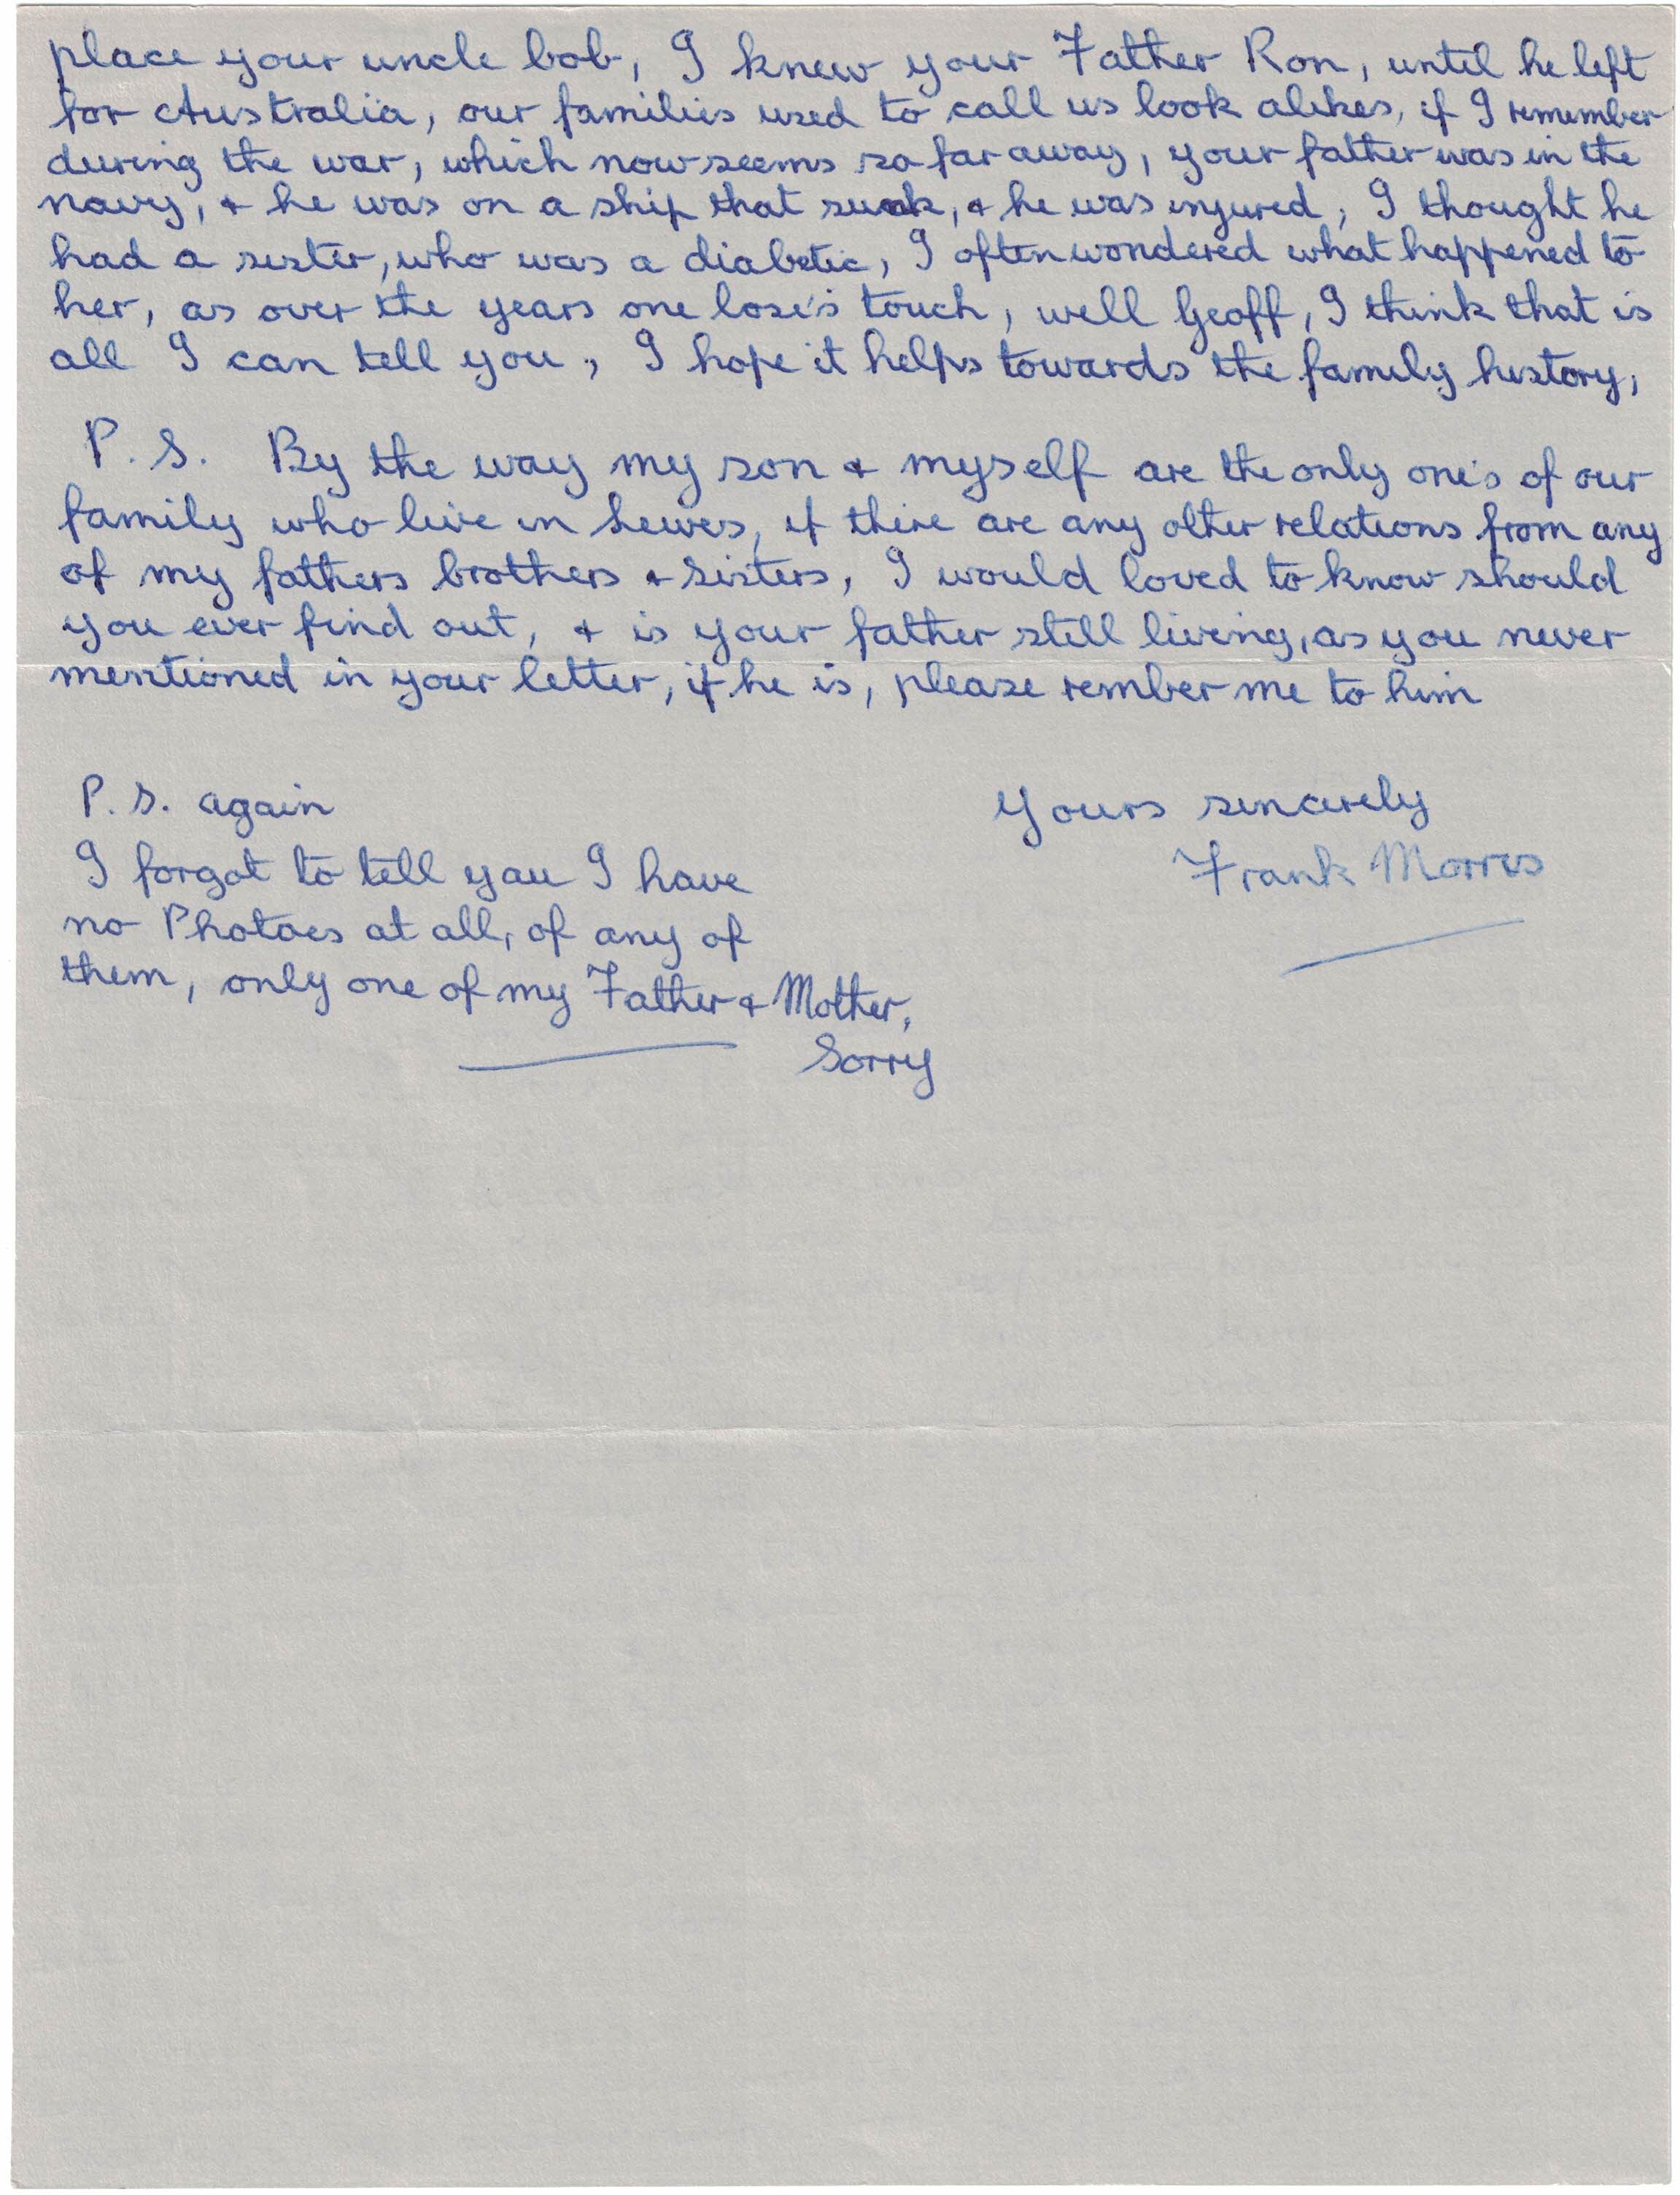 place your uncle bob, I knew your Father Ron, until he left
for Australia, our families used to call us look alikes, if I remember
during the war, which now seems so far away, your father was in the
navy, & he was on a ship that sunk, & he was injured, I thought he
had a sister, who was a diabetic, I often wondered what happened to
her, as over the years one lose's touch, well Geoff, I think that is
all I can tell you, I hope it helps towards the family history,
P.S. By the way my son & myself are the only one's of our
family who live in Lewes, if there are any other relations from any
of my fathers brothers & sisters, I would loved to know should
you ever find out, & is your father still living, as you never
mentioned in your letter, if he is, please rember me to him
Yours sincerely
Frank Morris
P.S. again
I forgot to tell you I have
no Photoes at all, of any of
them, only one of my Father & Mother,
Sorry